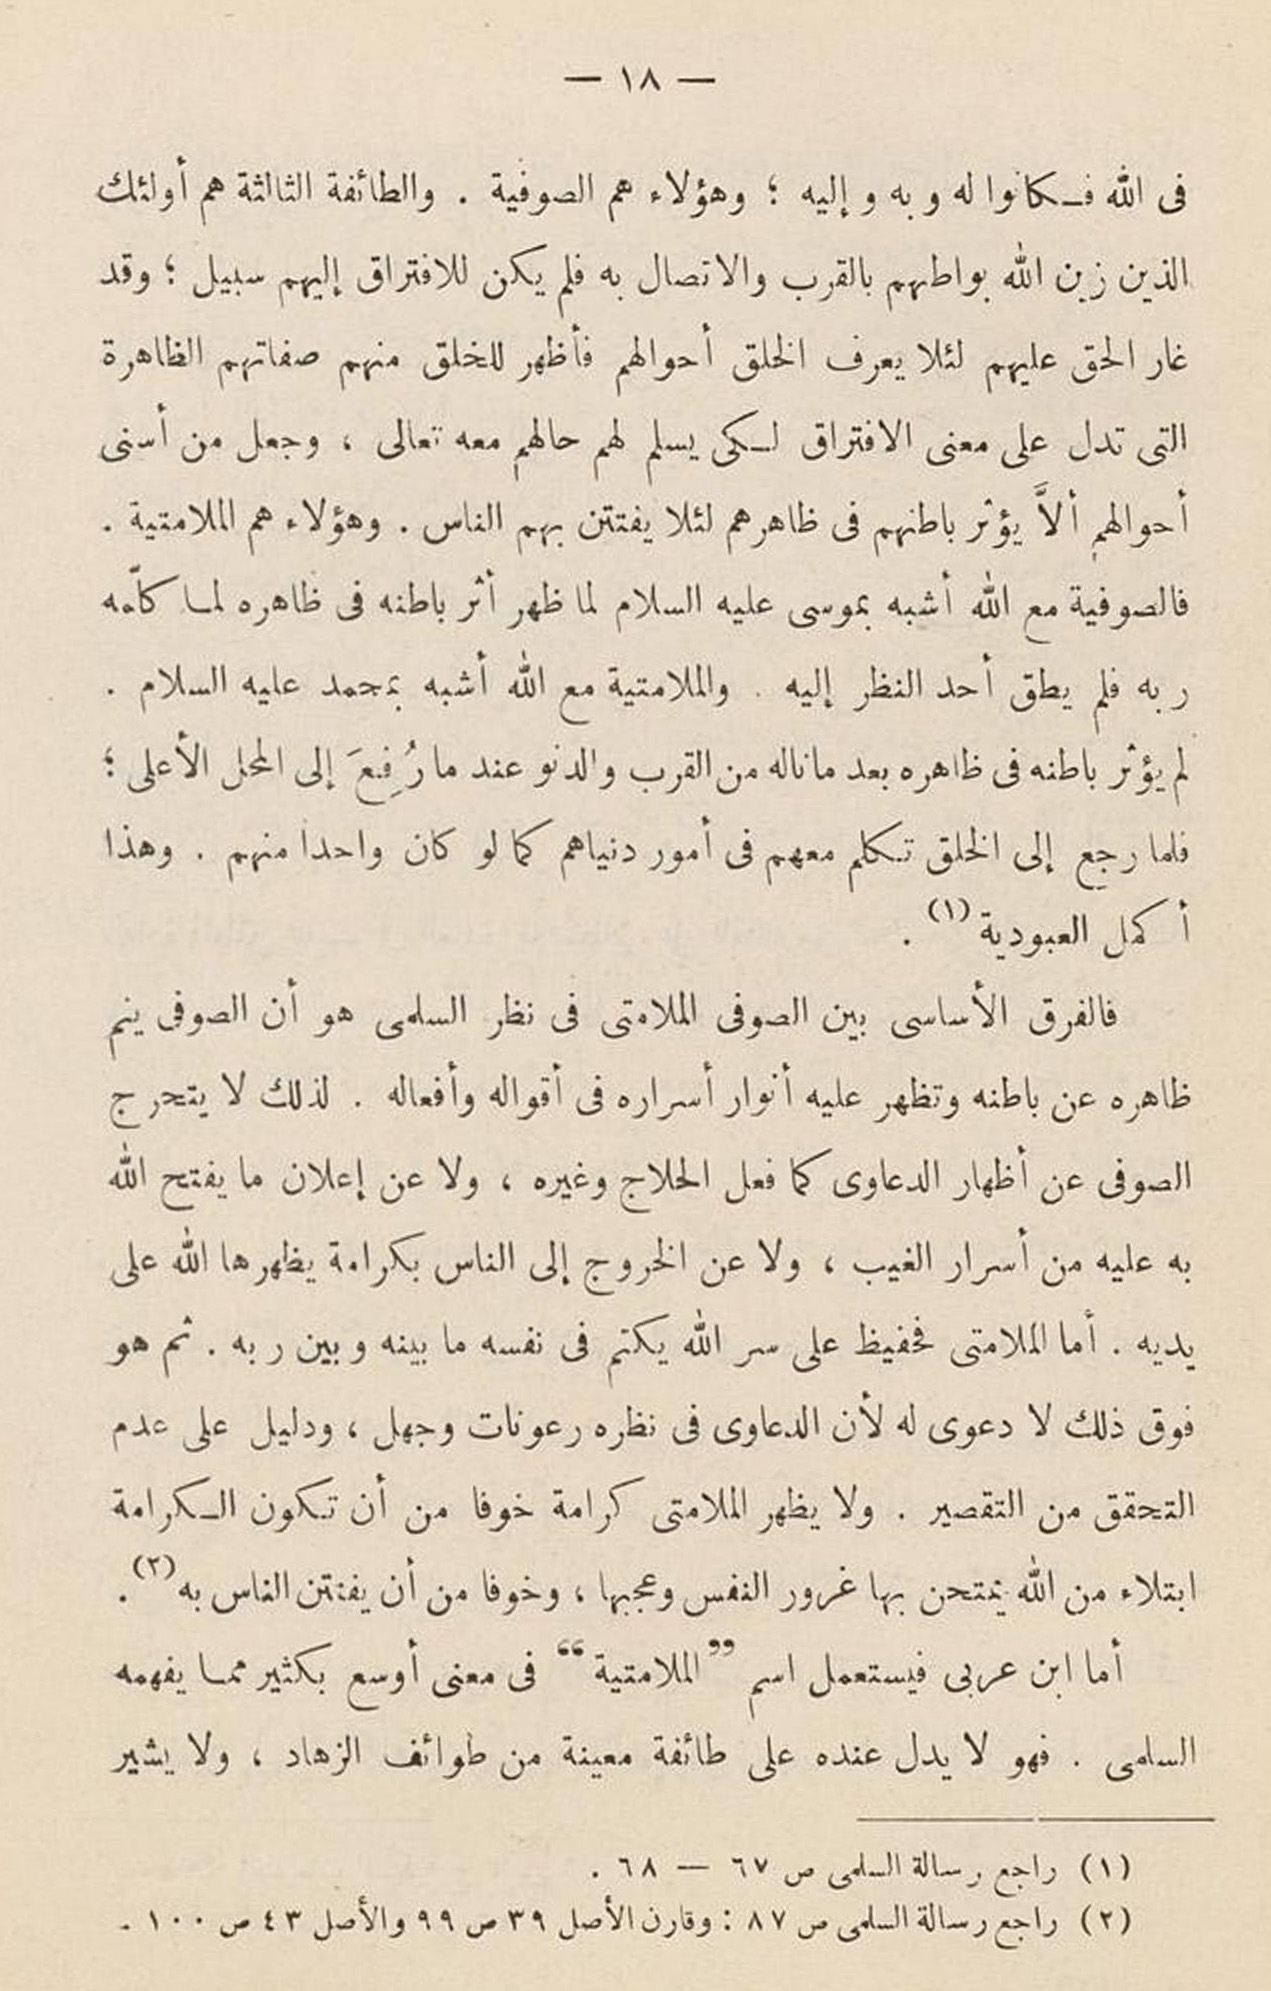 — ١٨ —
فى الله فكانوا له وبه وإليه ؛ وهؤلاء هم الصوفية . والطائفة الثالثة هم أولئك
الذين زين الله بواطنهم بالقرب والاتصال به فلم يكن للافتراق إليهم سبيل ؛ وقد
غار الحق عليهم لئلا يعرف الخلق أحوالهم فأظهر للخلق منهم صفاتهم الظاهرة
التى تدل على معنى الافتراق لكى يسلم لهم حالهم معه تعالى ، وجعل من أسنى
أحوالهم ألاَّ يؤثر باطنهم فى ظاهرهم لئلا يفتتن بهم الناس . وهؤلاء هم الملامتية .
فالصوفية مع الله أشبه بموسى عليه السلام لما ظهر أثر باطنه فى ظاهره لما كلّمه
ربه فلم يطق أحد النظر إليه . والملامتية مع الله أشبه بمحمد عليه السلام .
لم يؤثر باطنه فى ظاهره بعد ما ناله من القرب والدنو عند ما رُفِعَ إلى المحل الأعلى ؛
فلما رجع إلى الخلق تكلم معهم فى أمور دنياهم كما لو كان واحدا منهم . وهذا
أكمل العبودية (١) .
فالفرق الأساسى بين الصوفى الملامتى فى نظر السلمى هو أن الصوفى ينم
ظاهره عن باطنه وتظهر عليه أنوار أسراره فى أقواله وأفعاله . لذلك لا يتحرج
الصوفى عن أظهار الدعاوى كما فعل الحلاج وغيره ، ولا عن إعلان ما يفتح الله
به عليه من أسرار الغيب ، ولا عن الخروج إلى الناس بكرامة يظهرها الله على
يديه . أما الملامتى فحفيظ على سر الله يكتم فى نفسه ما بينه وبين ربه . ثم هو
فوق ذلك لا دعوى له لأن الدعاوى فى نظره رعونات وجهل ، ودليل على عدم
التحقق من التقصير . ولا يظهر الملامتى كرامة خوفا من أن تكون الكرامة
ابتلاء من الله يمتحن بها غرور النفس وعجبها ، وخوفا من أن يفتتن الناس به (٢) .
أما ابن عربى فيستعمل اسم ”الملامتية“ فى معنى أوسع بكثير مما يفهمه
السلمى . فهو لا يدل عنده على طائفة معينة من طوائف الزهاد ، ولا يشير
(١) راجع رسالة السلمى ص ٦٧ — ٦٨ .
(٢) راجع رسالة السلمى ص ٨٧ : وقارن الأصل ٣٩ ص ٩٩ والأصل ٤٣ ص ١٠٠ .